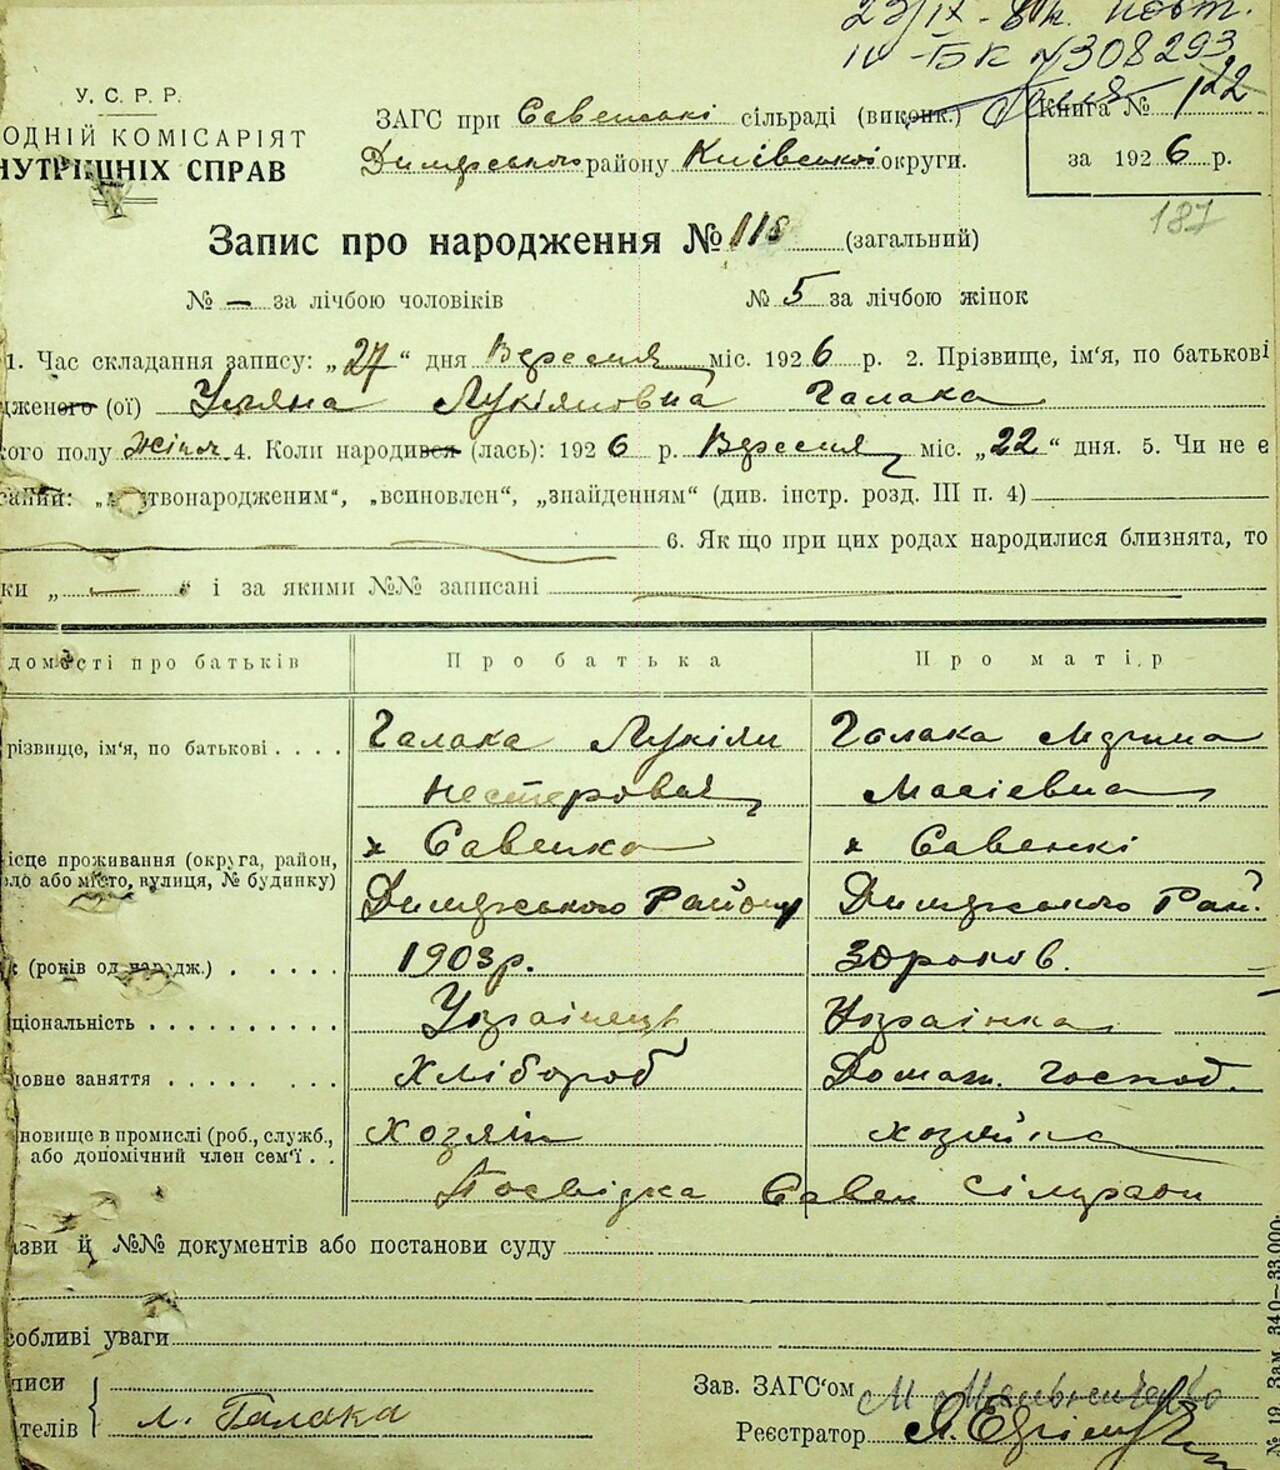 23/IX - 8 к. пошт.
IV - БК №308293
У. С. Р. Р.
ОДНІЙ КОМІСАРІЯТ
НУТРІШНІХ СПРАВ
ЗАГС при Савенські сільраді (виконк.)
Димерського району Київської округи.
Книга № 122
за 1926 р.
187
Запис про народження № 118 (загальний)
№ — за лічбою чоловіків № 5 за лічбою жінок
1. Час складання запису: „27“ дня Вересня міс. 1926 р. 2. Прізвище, ім'я, по батькові
дженого (ої) Уляна Лукіяновна Галака
кого полу жіноч. 4. Коли народився (лась): 1926 р. Вересня міс. „22“ дня. 5. Чи не є
саний: „мертвонародженим“, „всиновлен“, „знайденням“ (див. інстр. розд. III п. 4)
6. Як що при цих родах народилися близнята, то
ки „ — “ і за якими №№ записані
домості про батьків Про батька Про матір
різвище, ім'я, по батькові . . . . Галака Лукіян Галака Мотрина
Нестеровья Масіевна
ісце проживання (округа, район, х Савенка х Савенкі
ло або місто, вулиця, № будинку)
Димерського Району Димерського Рай.
к (років од народж.) . . . . . 1903 р. 30 років.
ціональність . . . . . . . . . . Українець Українка
овне заняття . . . . . . . . Хлібороб Домаш. Господ.
новище в промислі (роб., служб., Хозяін хозяйка
або допомічний член сем'ї . .
Посвідка Савен Сілради
азви й №№ документів або постанови суду
собливі уваги
писи
ителів л. Галака
Зав. ЗАГС'ом
Реєстратор
№ 19. Зам. 340—33.000.